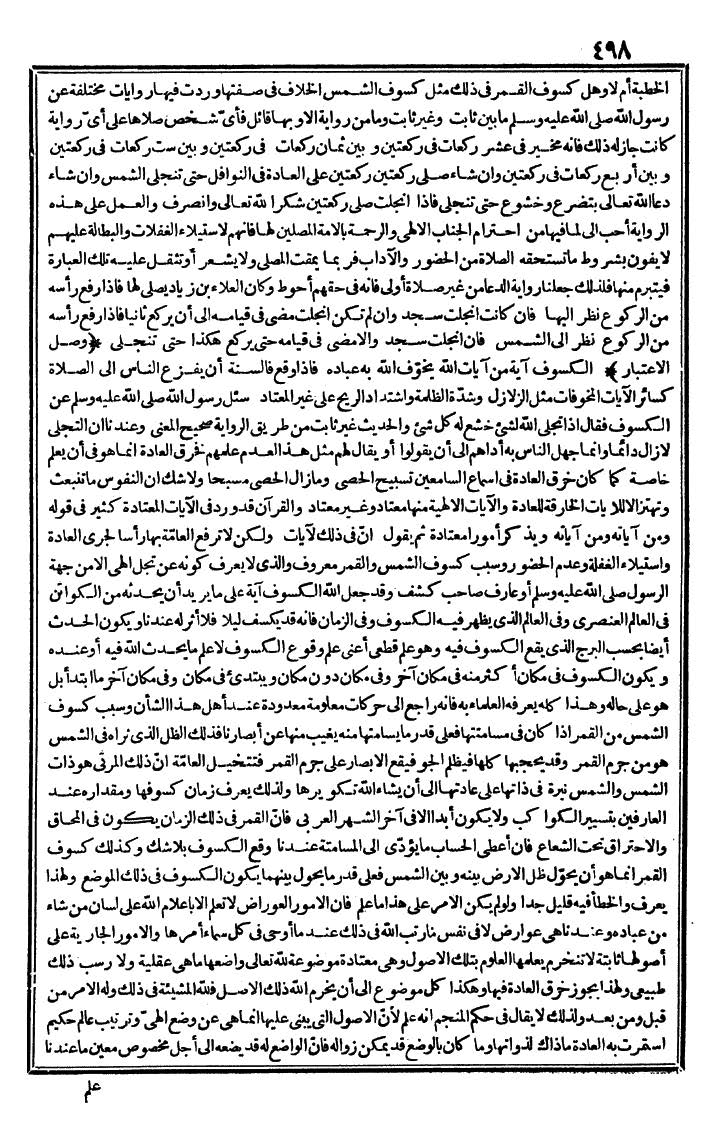 ٤٩٨
الخطبة أم لا وهل كسوف القمر فى ذلك مثل كسوف الشمس الخلاف فى صفتها وردت فيها روايات مختلفة عن
رسول الله صلى الله عليه وسلم ما بين ثابت وغير ثابت وما من رواية الا وبها قائل فأىّ شخص صلاها على أىّ رواية
كانت جاز له ذلك فانه مخير فى عشر ركعات فى ركعتين وبين ثمان ركعات فى ركعتين وبين ست ركعات فى ركعتين
وبين أربع ركعات فى ركعتين وان شاء صلى ركعتين ركعتين على العادة فى النوافل حتى تنجلى الشمس وان شاء
دعا الله تعالى بتضرع وخشوع حتى تنجلى فاذا انجلت صلى ركعتين شكرا لله تعالى وانصرف والعمل على هذه
الرواية أحب الى لما فيها من احترام الجناب الالهى والرحمة بالامة المصلين لها فانهم لاستيلاء الغفلات والبطالة عليهم
لا يفون بشروط ما تستحقه الصلاة من الحضور والآداب فربما يمقت المصلى ولا يشعر أو تثقل عليه تلك العبارة
فيتبرم منها فلذلك جعلنا رواية الدعا من غير صلاة أولى فانه فى حقهم أحوط وكان العلاء بن زياد يصلى لها فاذا رفع رأسه
من الركوع نظر اليها فان كانت انجلت سجد وان لم تكن انجلت مضى فى قيامه الى أن يركع ثانيا فاذا رفع رأسه
من الركوع نظر الى الشمس فان انجلت سجد والا مضى فى قيامه حتى يركع هكذا حتى تنجلى ﴿وصل
الاعتبار﴾ الكسوف آية من آيات الله يخوّف الله به عباده فاذا وقع فالسنة أن يفزع الناس الى الصلاة
كسائر الآيات المخوفات مثل الزلازل وشدّة الظلمة واشتداد الريح على غير المعتاد سئل رسول الله صلى الله عليه وسلم عن
الكسوف فقال اذا تجلى الله لشئ خشع له كل شئ والحديث غير ثابت من طريق الرواية صحيح المعنى وعندنا ان التجلى
لا زال دائما وانما جهل الناس به أداهم الى أن يقولوا أو يقال لهم مثل هذا لعدم علمهم نفرق العادة انما هو فى أن يعلم
خاصة كما كان خرق العادة فى اسماع السامعين تسبيح الحصى وما زال الحصى مسبحا ولا شك ان النفوس ما تنبعث
وتهتز الا للايات الخارقة للعادة والآيات الالهية منها معتاد وغير معتاد والقرآن قد ورد فى الآيات المعتادة كثير فى قوله
ومن آياته ومن آياته ويذكر أمورا معتادة ثم يقول انّ فى ذلك لآيات ولكن لا ترفع العامّة بها رأسا لجرى العادة
واستيلاء الغفلة وعدم الحضور وسبب كسوف الشمس والقمر معروف والذى لا يعرف كونه عن تجل الهى الا من جهة
الرسول صلى الله عليه وسلم أو عارف صاحب كشف وقد جعل الله الكسوف آية على ما يريد أن يحدثه من الكوائن
فى العالم العنصرى وفى العالم الذى يظهر فيه الكسوف وفى الزمان فانه قد يكسف ليلا فلا أثر له عندنا ويكون الحدث
أيضا بحسب البرج الذى يقع الكسوف فيه وهو علم قطعى أعنى علم وقوع الكسوف لا علم ما يحدث الله فيه أو عنده
ويكون الكسوف فى مكان أكثر منه فى مكان آخر وفى مكان دون مكان ويبتدئ فى مكان وفى مكان آخر ما ابتدأ بل
هو على حاله وهذا كله يعرفه العلماء به فانه راجع الى حركات معلومة معدودة عند أهل هذا الشأن وسبب كسوف
الشمس من القمر اذا كان فى مسامتتها فعلى قدر ما يسامتها منه يغيب منها عن أبصارنا فذلك الظل الذى نراه فى الشمس
هو من جرم القمر وقد يحجبها كلها فيظلم الجو فيقع الابصار على جرم القمر فتتخيل العامّة انّ ذلك المرئى هو ذات
الشمس والشمس نيرة فى ذاتها على عادتها الى أن يشاء الله تكويرها ولذلك يعرف زمان كسوفها ومقداره عند
العارفين بتسيير الكواكب ولا يكون أبدا الا فى آخر الشهر العربى فانّ القمر فى ذلك الزمان يكون فى المحاق
والاحتراق تحت الشعاع فان أعطى الحساب ما يؤدّى الى المسامتة عندنا وقع الكسوف بلا شك وكذلك كسوف
القمر انما هو أن يحوّل ظل الارض بينه وبين الشمس فعلى قدر ما يحول بينهما يكون الكسوف فى ذلك الموضع ولهذا
يعرف والخطأ فيه قليل جدا ولو لم يكن الامر على هذا ما علم فان الامور العوارض لا تعلم الا باعلام الله على لسان من شاء
من عباده وعندنا هى عوارض لا فى نفس ما رتب الله فى ذلك عند ما أوحى فى كل سماء أمرها والامور الجارية على
أصولها ثابتة لا تنخرم يعلمها العلوم بتلك الاصول وهى معتادة موضوعة لله تعالى واضعها ما هى عقلية ولا رسب ذلك
طبيعى ولهذا يجوز خرق العادة فيها وهكذا كل موضوع الى أن يخرم الله ذلك الاصل فلله المشيئة فى ذلك وله الامر من
قبل ومن بعد ولذلك لا يقال فى حكم المنجم انه علم لأنّ الاصول التى يبنى عليها انما هى عن وضع الهىّ وترتيب عالم حكيم
استمرت به العادة ما ذاك لذواتها وما كان بالوضع قد يمكن زواله فانّ الواضع له قد يضعه الى أجل مخصوص معين ما عندنا
علم